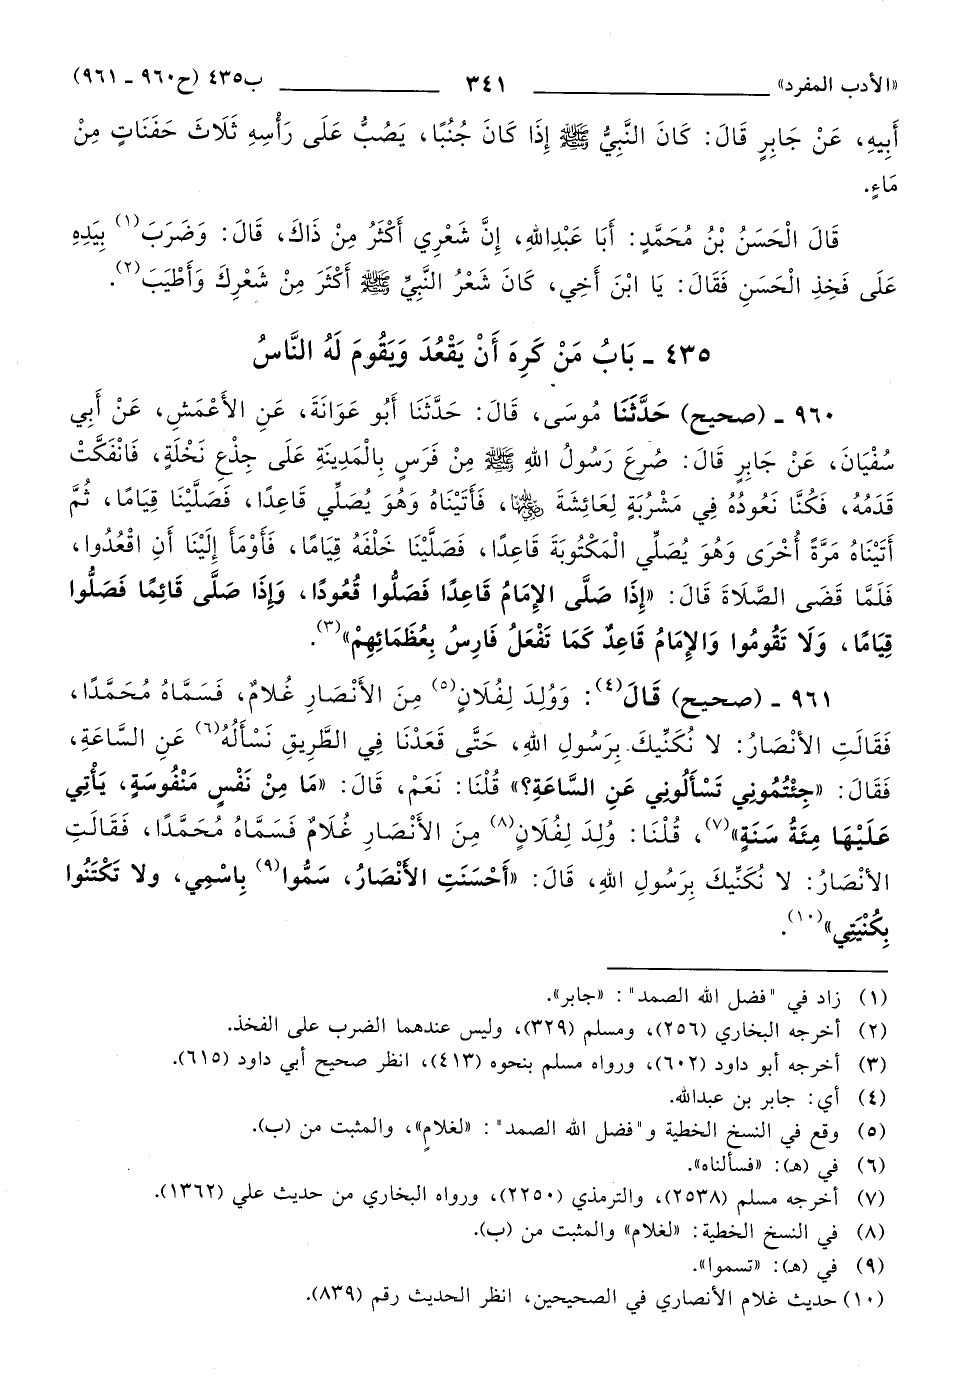 «الأدب المفرد» ٣٤١ ب٤٣٥ (ح٩٦٠ ـ ٩٦١)
أَبِيهِ، عَنْ جَابِرٍ قَالَ: كَانَ النَّبِيُّ ﷺ إِذَا كَانَ جُنُبًا، يَصُبُّ عَلَى رَأْسِهِ ثَلَاثَ حَفَنَاتٍ مِنْ
مَاءٍ.
قَالَ الْحَسَنُ بْنُ مُحَمَّدٍ: أَبَا عَبْدِاللهِ، إِنَّ شَعْرِي أَكْثَرُ مِنْ ذَاكَ، قَالَ: وَضَرَبَ(١) بِيَدِهِ
عَلَى فَخِذِ الْحَسَنِ فَقَالَ: يَا ابْنَ أَخِي، كَانَ شَعْرُ النَّبِيِّ ﷺ أَكْثَرَ مِنْ شَعْرِكَ وَأَطْيَبَ(٢).
٤٣٥ ـ بَابُ مَنْ كَرِهَ أَنْ يَقْعُدَ وَيَقُومَ لَهُ النَّاسُ
٩٦٠ ـ (صحيح) حَدَّثَنَا مُوسَى، قَالَ: حَدَّثَنَا أَبُو عَوَانَةَ، عَنِ الأَعْمَشِ، عَنْ أَبِي
سُفْيَانَ، عَنْ جَابِرٍ قَالَ: صُرِعَ رَسُولُ اللهِ ﷺ مِنْ فَرَسٍ بِالْمَدِينَةِ عَلَى جِذْعِ نَخْلَةٍ، فَانْفَكَّتْ
قَدَمُهُ، فَكُنَّا نَعُودُهُ فِي مَشْرُبَةٍ لِعَائِشَةَ رضي الله عنها، فَأَتَيْنَاهُ وَهُوَ يُصَلِّي قَاعِدًا، فَصَلَّيْنَا قِيَامًا، ثُمَّ
أَتَيْنَاهُ مَرَّةً أُخْرَى وَهُوَ يُصَلِّي الْمَكْتُوبَةَ قَاعِدًا، فَصَلَّيْنَا خَلْفَهُ قِيَامًا، فَأَوْمَأَ إِلَيْنَا أَنِ اقْعُدُوا،
فَلَمَّا قَضَى الصَّلَاةَ قَالَ: «إِذَا صَلَّى الإِمَامُ قَاعِدًا فَصَلُّوا قُعُودًا، وَإِذَا صَلَّى قَائِمًا فَصَلُّوا
قِيَامًا، وَلَا تَقُومُوا وَالإِمَامُ قَاعِدٌ كَمَا تَفْعَلُ فَارِسُ بِعُظَمَائِهِمْ»(٣).
٩٦١ ـ (صحيح) قَالَ(٤): وَوُلِدَ لِفُلَانٍ(٥) مِنَ الأَنْصَارِ غُلَامٌ، فَسَمَّاهُ مُحَمَّدًا،
فَقَالَتِ الأَنْصَارُ: لا نُكَنِّيكَ بِرَسُولِ اللهِ، حَتَّى قَعَدْنَا فِي الطَّرِيقِ نَسْأَلُهُ(٦) عَنِ السَّاعَةِ،
فَقَالَ: «جِئْتُمُونِي تَسْأَلُونِي عَنِ السَّاعَةِ؟» قُلْنَا: نَعَمْ، قَالَ: «مَا مِنْ نَفْسٍ مَنْفُوسَةٍ، يَأْتِي
عَلَيْهَا مِئَةُ سَنَةٍ»(٧)، قُلْنَا: وُلِدَ لِفُلَانٍ(٨) مِنَ الأَنْصَارِ غُلَامٌ فَسَمَّاهُ مُحَمَّدًا، فَقَالَتِ
الأَنْصَارُ: لا نُكَنِّيكَ بِرَسُولِ اللهِ، قَالَ: «أَحْسَنَتِ الأَنْصَارُ، سَمُّوا(٩) بِاسْمِي، ولا تَكْتَنُوا
بِكُنْيَتِي»(١٠).
(١) زاد في "فضل الله الصمد": «جابر».
(٢) أخرجه البخاري (٢٥٦)، ومسلم (٣٢٩)، وليس عندهما الضرب على الفخذ.
(٣) أخرجه أبو داود (٦٠٢)، ورواه مسلم بنحوه (٤١٣)، انظر صحيح أبي داود (٦١٥).
(٤) أي: جابر بن عبدالله.
(٥) وقع في النسخ الخطية و"فضل الله الصمد": «لغلامٍ»، والمثبت من (ب).
(٦) في (هـ): «فسألناه».
(٧) أخرجه مسلم (٢٥٣٨)، والترمذي (٢٢٥٠)، ورواه البخاري من حديث علي (١٣٦٢).
(٨) في النسخ الخطية: «لغلام» والمثبت من (ب).
(٩) في (هـ): «تسموا».
(١٠) حديث غلام الأنصاري في الصحيحين، انظر الحديث رقم (٨٣٩).